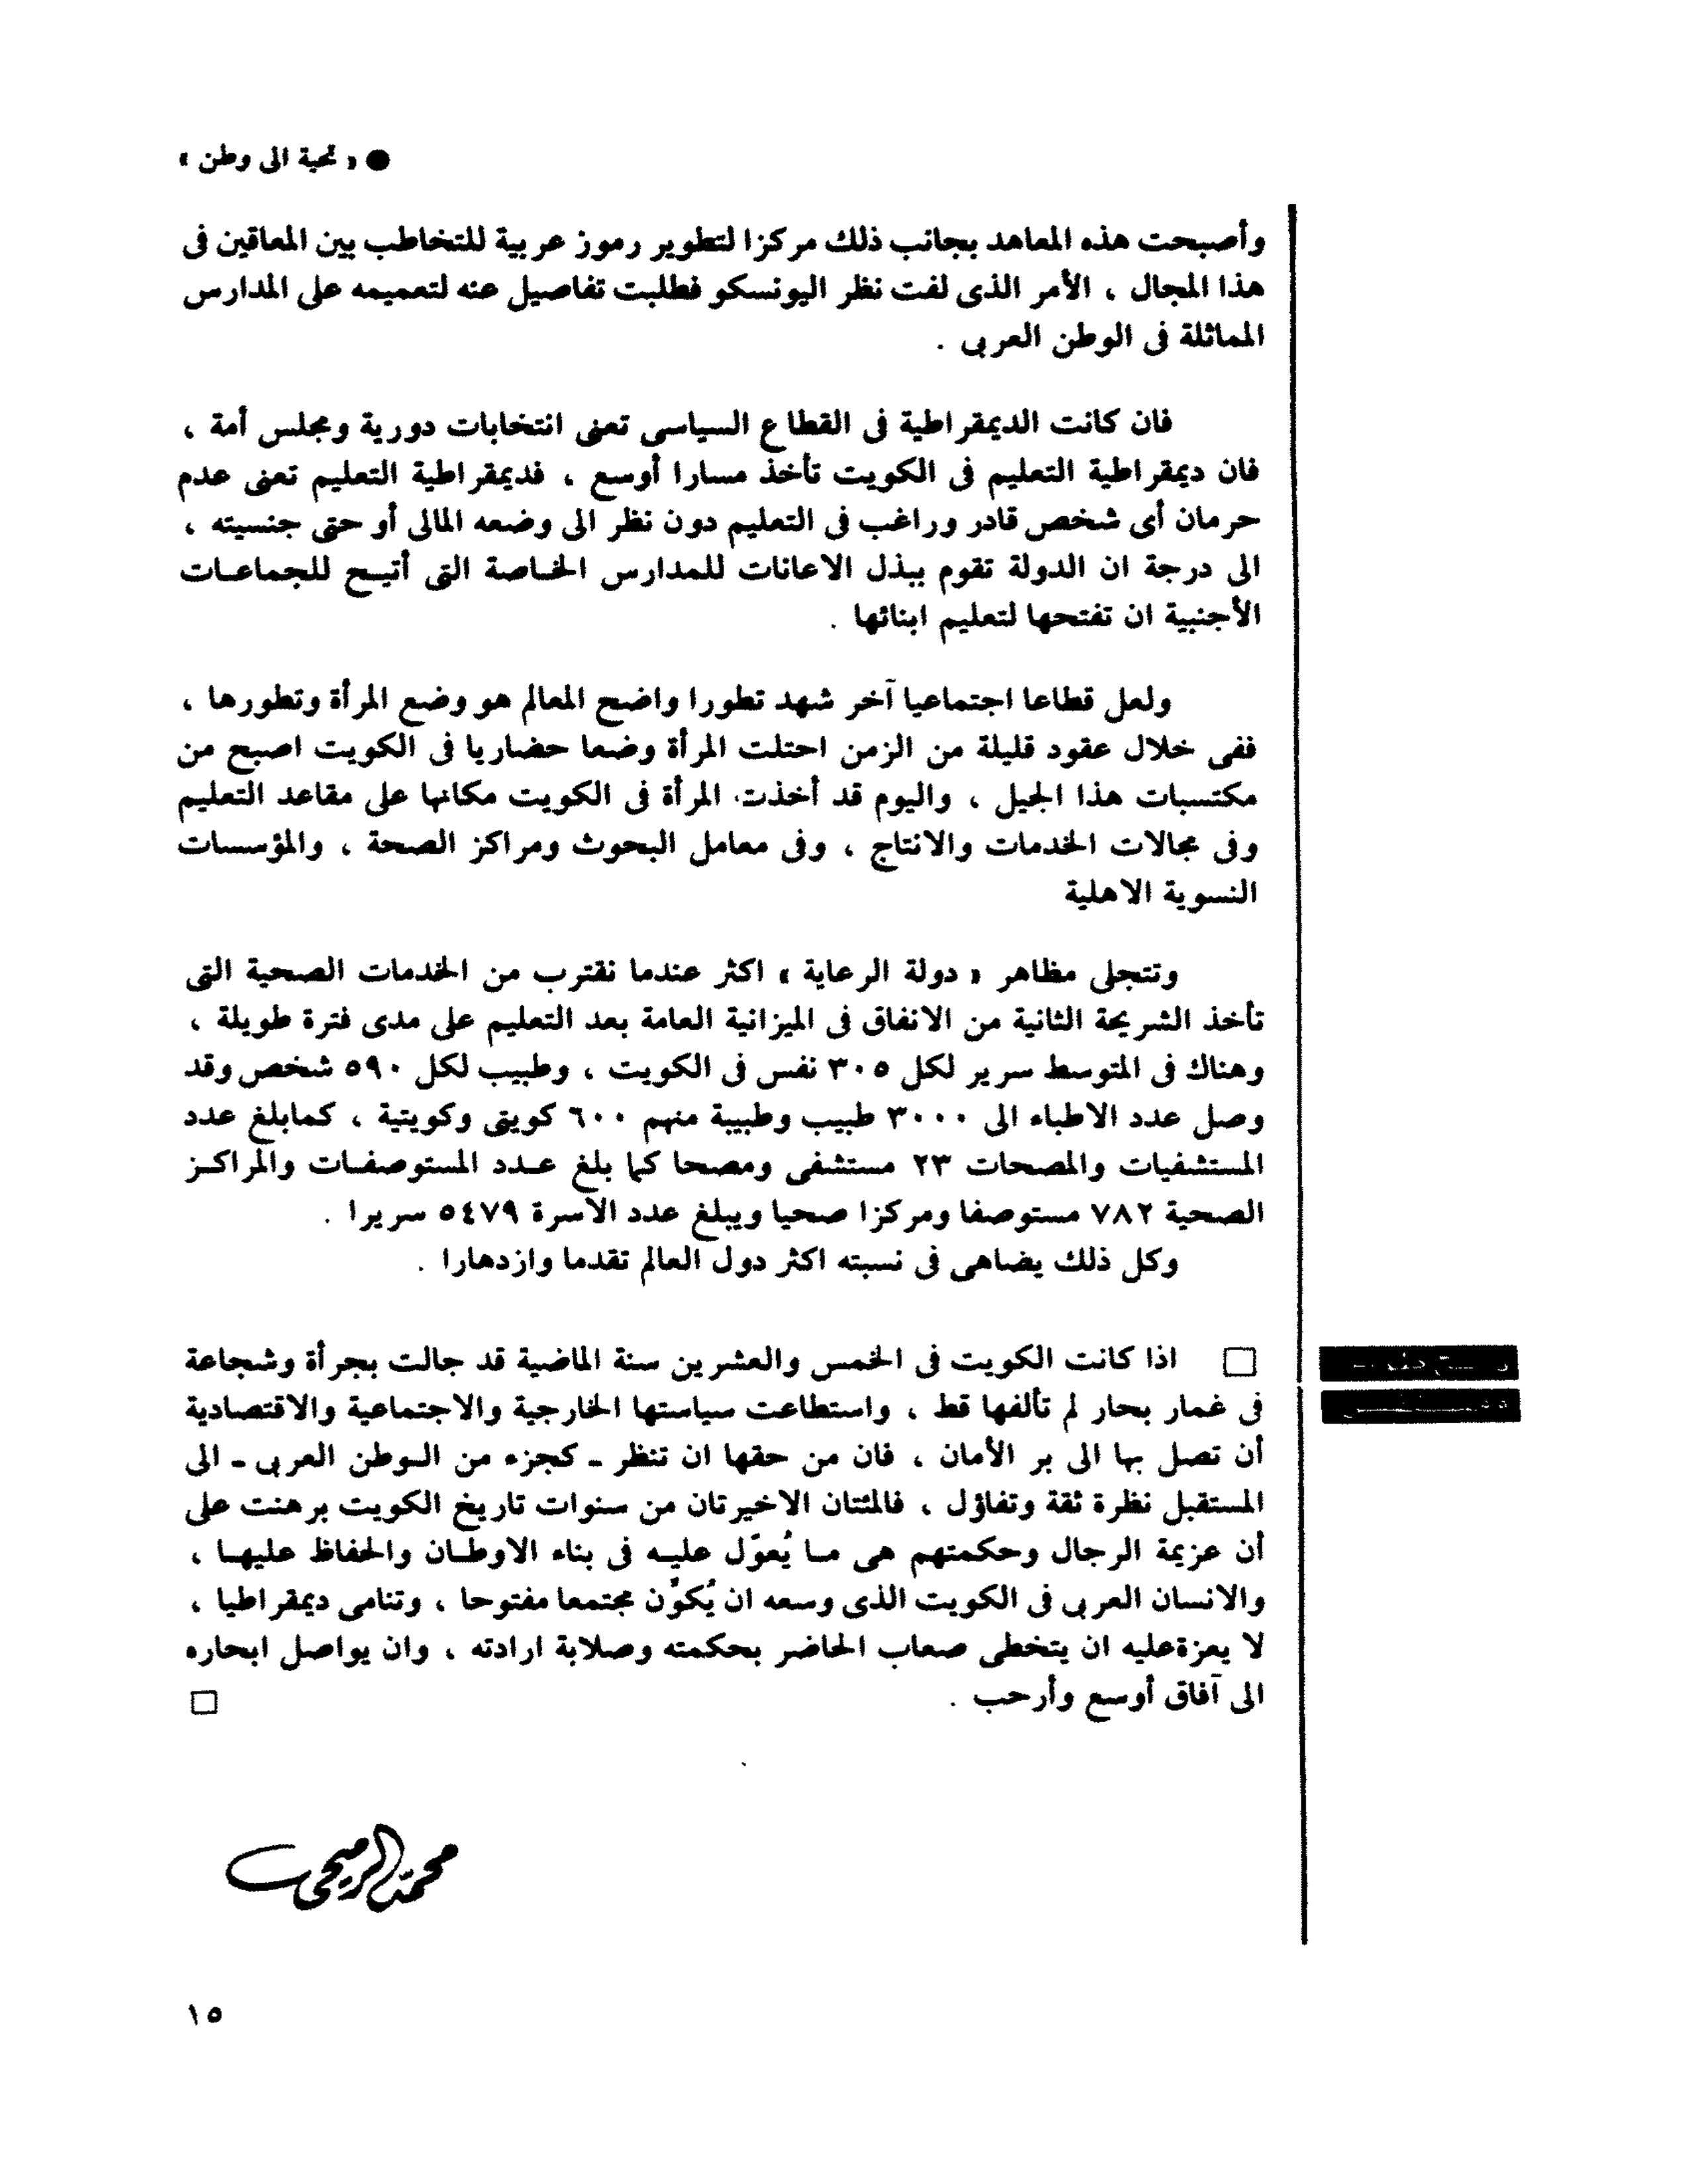 ● « تحية الى وطن »
وأصبحت هذه المعاهد بجانب ذلك مركزا لتطوير رموز عربية للتخاطب بين المعاقين فى
هذا المجال ، الأمر الذى لفت نظر اليونسكو فطلبت تفاصيل عنه لتعميمه على المدارس
المماثلة فى الوطن العربى .
فان كانت الديمقراطية فى القطاع السياسى تعنى انتخابات دورية ومجلس أمة ،
فان ديمقراطية التعليم فى الكويت تأخذ مسارا أوسع ، فديمقراطية التعليم تعنى عدم
حرمان أى شخص قادر وراغب فى التعليم دون نظر الى وضعه المالى أو حتى جنسيته ،
الى درجة ان الدولة تقوم ببذل الاعانات للمدارس الخاصة التى أتيح للجماعات
الأجنبية ان تفتحها لتعليم ابنائها .
ولعل قطاعا اجتماعيا آخر شهد تطورا واضح المعالم هو وضع المرأة وتطورها ،
ففى خلال عقود قليلة من الزمن احتلت المرأة وضعا حضاريا فى الكويت اصبح من
مكتسبات هذا الجيل ، واليوم قد أخذت المرأة فى الكويت مكانها على مقاعد التعليم
وفى مجالات الخدمات والانتاج ، وفى معامل البحوث ومراكز الصحة ، والمؤسسات
النسوية الاهلية
وتتجلى مظاهر « دولة الرعاية » اكثر عندما نقترب من الخدمات الصحية التى
تأخذ الشريحة الثانية من الانفاق فى الميزانية العامة بعد التعليم على مدى فترة طويلة ،
وهناك فى المتوسط سرير لكل ٣٠٥ نفس فى الكويت ، وطبيب لكل ٥٩٠ شخص وقد
وصل عدد الاطباء الى ٣٠٠٠ طبيب وطبيبة منهم ٦٠٠ كويتى وكويتية ، كمابلغ عدد
المستشفيات والمصحات ٢٣ مستشفى ومصحا كما بلغ عدد المستوصفات والمراكز
الصحية ٧٨٢ مستوصفا ومركزا صحيا ويبلغ عدد الاسرة ٥٤٧٩ سريرا .
وكل ذلك يضاهى فى نسبته اكثر دول العالم تقدما وازدهارا .
□ اذا كانت الكويت فى الخمس والعشرين سنة الماضية قد جالت بجرأة وشجاعة
فى غمار بحار لم تألفها قط ، واستطاعت سياستها الخارجية والاجتماعية والاقتصادية
أن تصل بها الى بر الأمان ، فان من حقها ان تنظر - كجزء من الوطن العربى - الى
المستقبل نظرة ثقة وتفاؤل ، فالمئتان الاخيرتان من سنوات تاريخ الكويت برهنت على
أن عزيمة الرجال وحكمتهم هى ما يُعوّل عليه فى بناء الاوطان والحفاظ عليها ،
والانسان العربى فى الكويت الذى وسعه ان يُكوّن مجتمعا مفتوحا ، وتنامى ديمقراطيا ،
لا يعزةعليه ان يتخطى صعاب الحاضر بحكمته وصلابة ارادته ، وان يواصل ابحاره
الى آفاق أوسع وأرحب . □
محمد الرميحى
١٥